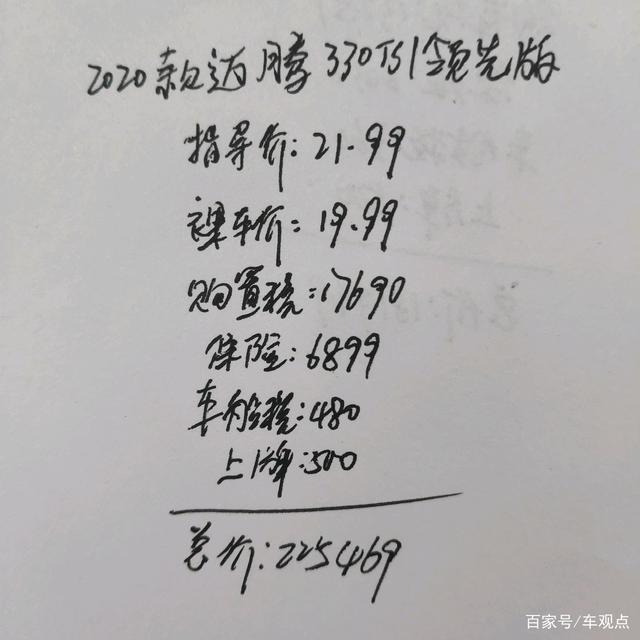 2020款迈腾330TSI领先版
指导价:21.99
裸车价:19.99
购置税:17690
保险:6899
车船税:480
上牌:500
总价:225469
百家号/车观点